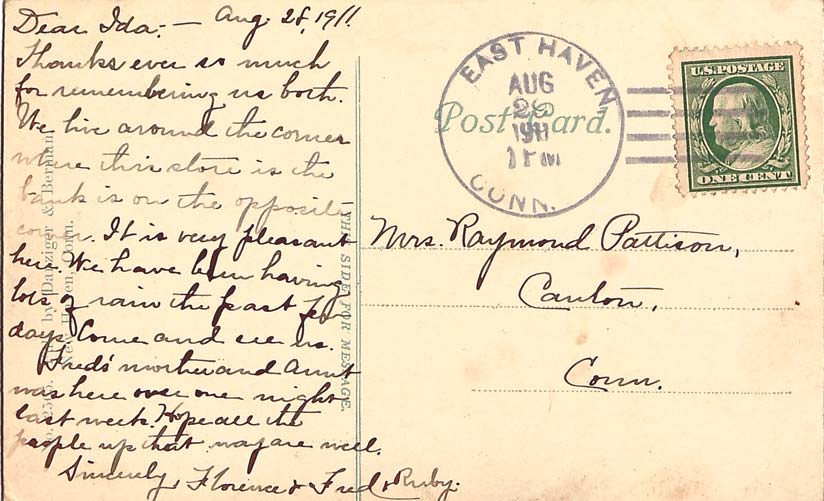 Dear Ida;— Aug. 28, 1911.
Thanks ever so much
for remembering us both.
We live around the corner
where this store is the
bank is on the opposite
corner. It is very pleasant
here. We have been having
lots of rain the past few
days. Come and see us.
Fred's mother and Aunt
was here over one night
last week. Hope all the
people up that way are well.
Sincerely, Florence & Fred & Ruby.
by Danziger & Berman
New Haven, Conn.
THIS SIDE FOR MESSAGE.
Post Card.
EAST HAVEN
AUG
1911
1 PM
CONN.
U.S. POSTAGE
ONE CENT
Mrs. Raymond Pattison,
Canton,
Conn.